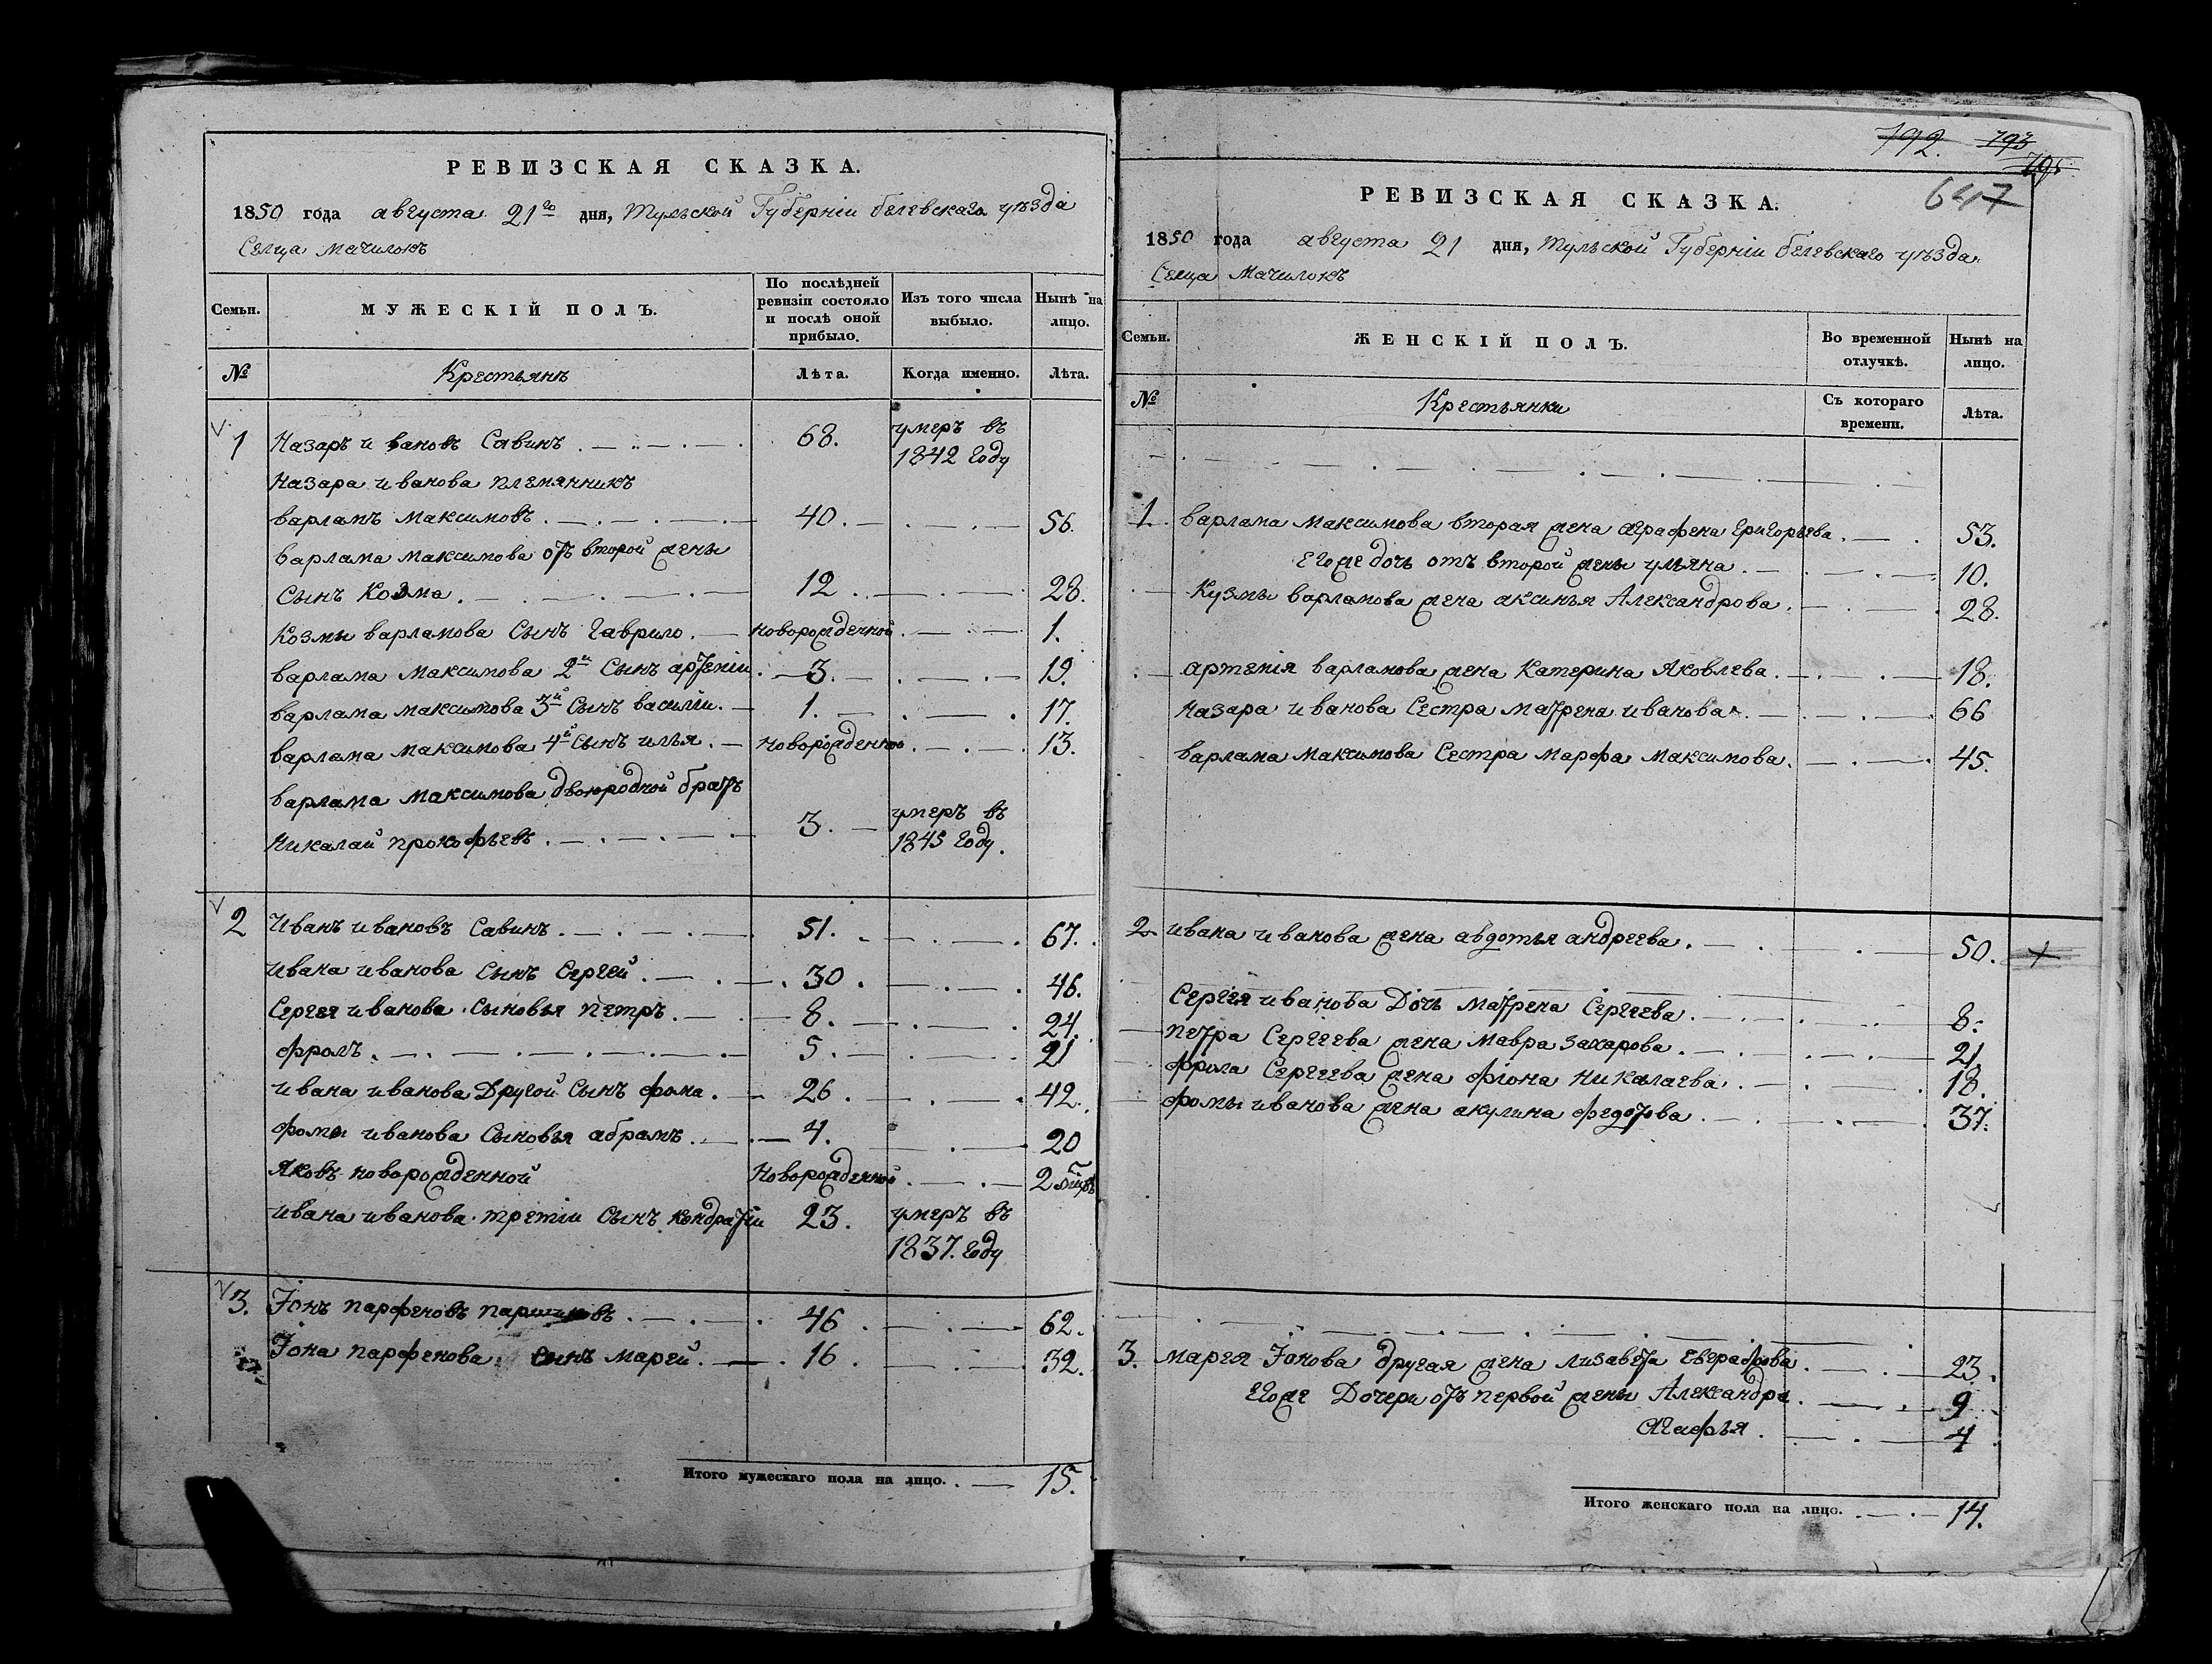 РЕВИЗСКАЯ СКАЗКА.
1850 года августа 21го дня, Тульской Губерніи белевскаго уѣзда
Селца мачилокъ
Семьи. МУЖЕСКІЙ ПОЛЪ. По послѣдней ревизіи состояло и послѣ оной прибыло. Изъ того числа выбыло. Нынѣ на лицо.
№ Крестьянъ Лѣта. Когда именно. Лѣта.
1 Назаръ ивановъ Савинъ 68. умеръ въ 1842 году
Назара иванова племянникъ
варламъ максимовъ 40. 56.
варлама максимова отъ второй жены
сынъ Козма 12. 28.
Козмы варламова Сынъ гаврило. новорожденной 1.
варлама максимова 2й Сынъ артеніи 3. 19.
варлама максимова 3й Сынъ василій. 1. 17.
варлама максимова 4й Сынъ илья. новорожденной 13.
варлама максимова двоюродной братъ
Никалай прокофьевъ 3. умеръ въ 1845 году.
2 Иванъ ивановъ Савинъ. 51. 67.
ивана иванова Сынъ Сергей. 30. 46.
Сергея иванова Сыновья петръ. 8. 24.
фролъ. 5. 21
ивана иванова Другой Сынъ фома. 26. 42.
фомы иванова Сыновья абрамъ. 4. 20
Яковъ новорожденной Новорожденной 2
ивана иванова третіи Сынъ кондратіи 23. умеръ въ 1837. году
3. Іонъ парфеновъ 46. 62.
Іона парфенова Сынъ марей. 16. 32.
Итого мужескаго пола на лицо. 15.
792. 793
795
647
РЕВИЗСКАЯ СКАЗКА.
1850 года августа 21 дня, Тульской Губерніи белевскаго уѣзда.
Селца Мачилокъ
Семьи. ЖЕНСКІЙ ПОЛЪ. Во временной отлучкѣ. Нынѣ на лицо.
№ Крестьянки Съ котораго времени. Лѣта.
1. варлама максимова вторая жена аграфена григорьева. 53.
егоже дочь отъ второй жены ульяна. 10.
Кузмы варламова жена аксинья Александрова. 28.
артенія варламова жена Катерина Яковлева. 18.
Назара иванова Сестра матрена иванова. 66
варлама максимова Сестра марфа максимова. 45.
2. ивана иванова жена авдотья андреева. 50.
Сергея иванова Дочь матрена Сергеева. 8.
петра Сергеева жена мавра захарова. 21.
фрола Сергеева жена фіона никалаева. 18.
фомы иванова жена акулина федотова. 37.
3. марея Іонова другая жена лизавета евграфова. 23.
егоже Дочери отъ первой жены Александра. 9
Агафья. 4
Итого женскаго пола на лицо. 14.